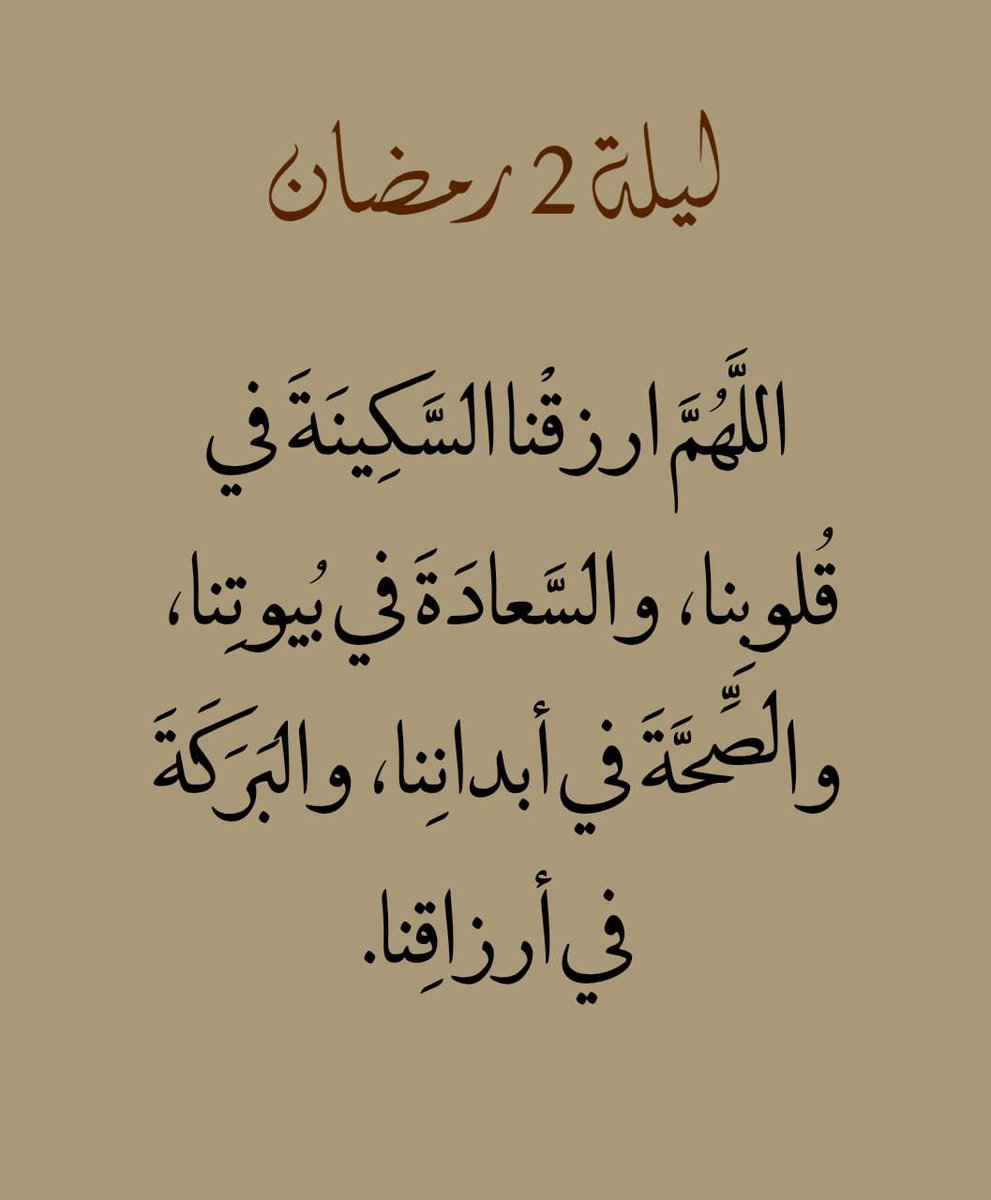 ليلة 2 رمضان
اللَّهُمَّ ارزقْنا السَّكِينَةَ في
قُلوبِنا، والسَّعادَةَ في بُيوتِنا،
والصِّحَّةَ في أبدانِنا، والبَرَكَةَ
في أرزاقِنا.